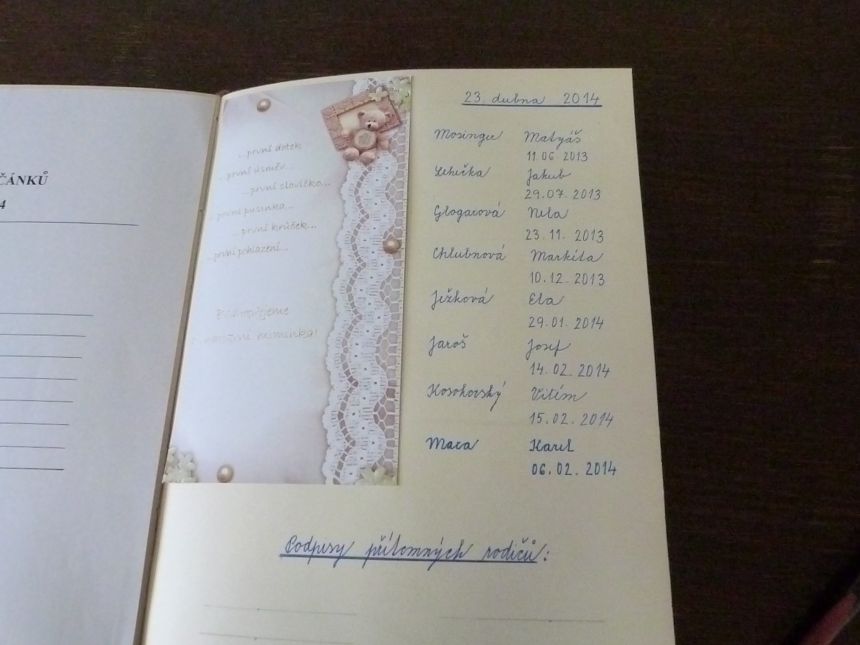 ČÁNKŮ
4
...první dotek
...první úsměv...
...první slovíčko...
...první pusinka...
...první krůček...
...první pohlazení...
miminka!
23. dubna 2014
Mosinger Matyáš
11. 06. 2013
Lehečka Jakub
29. 07. 2013
Glogarová Nela
23. 11. 2013
Chlubnová Markéta
10. 12. 2013
Ježková Ela
29. 01. 2014
Jaroš Josef
14. 02. 2014
Kosohorský Vilém
15. 02. 2014
Maca Karel
06. 02. 2014
Podpisy přítomných rodičů: